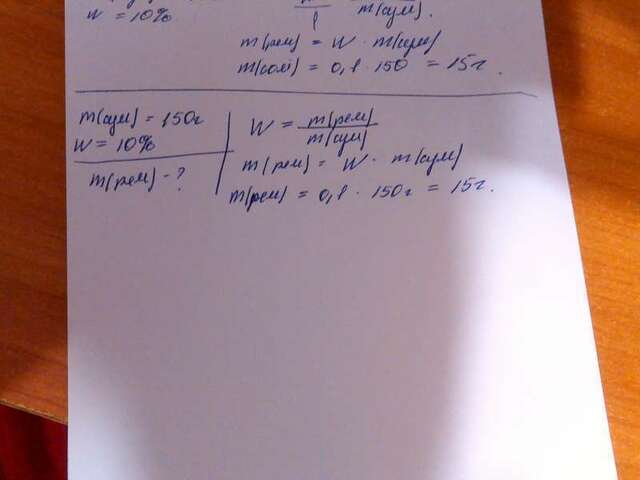 w = 10%
m(сум).
m(реч) = w · m(сум)
m(солі) = 0,1 · 150 = 15г.
m(сум) = 150г
w = 10%
m(реч) - ?
w = m(реч) / m(сум)
m(реч) = w · m(сум)
m(реч) = 0,1 · 150г = 15г.